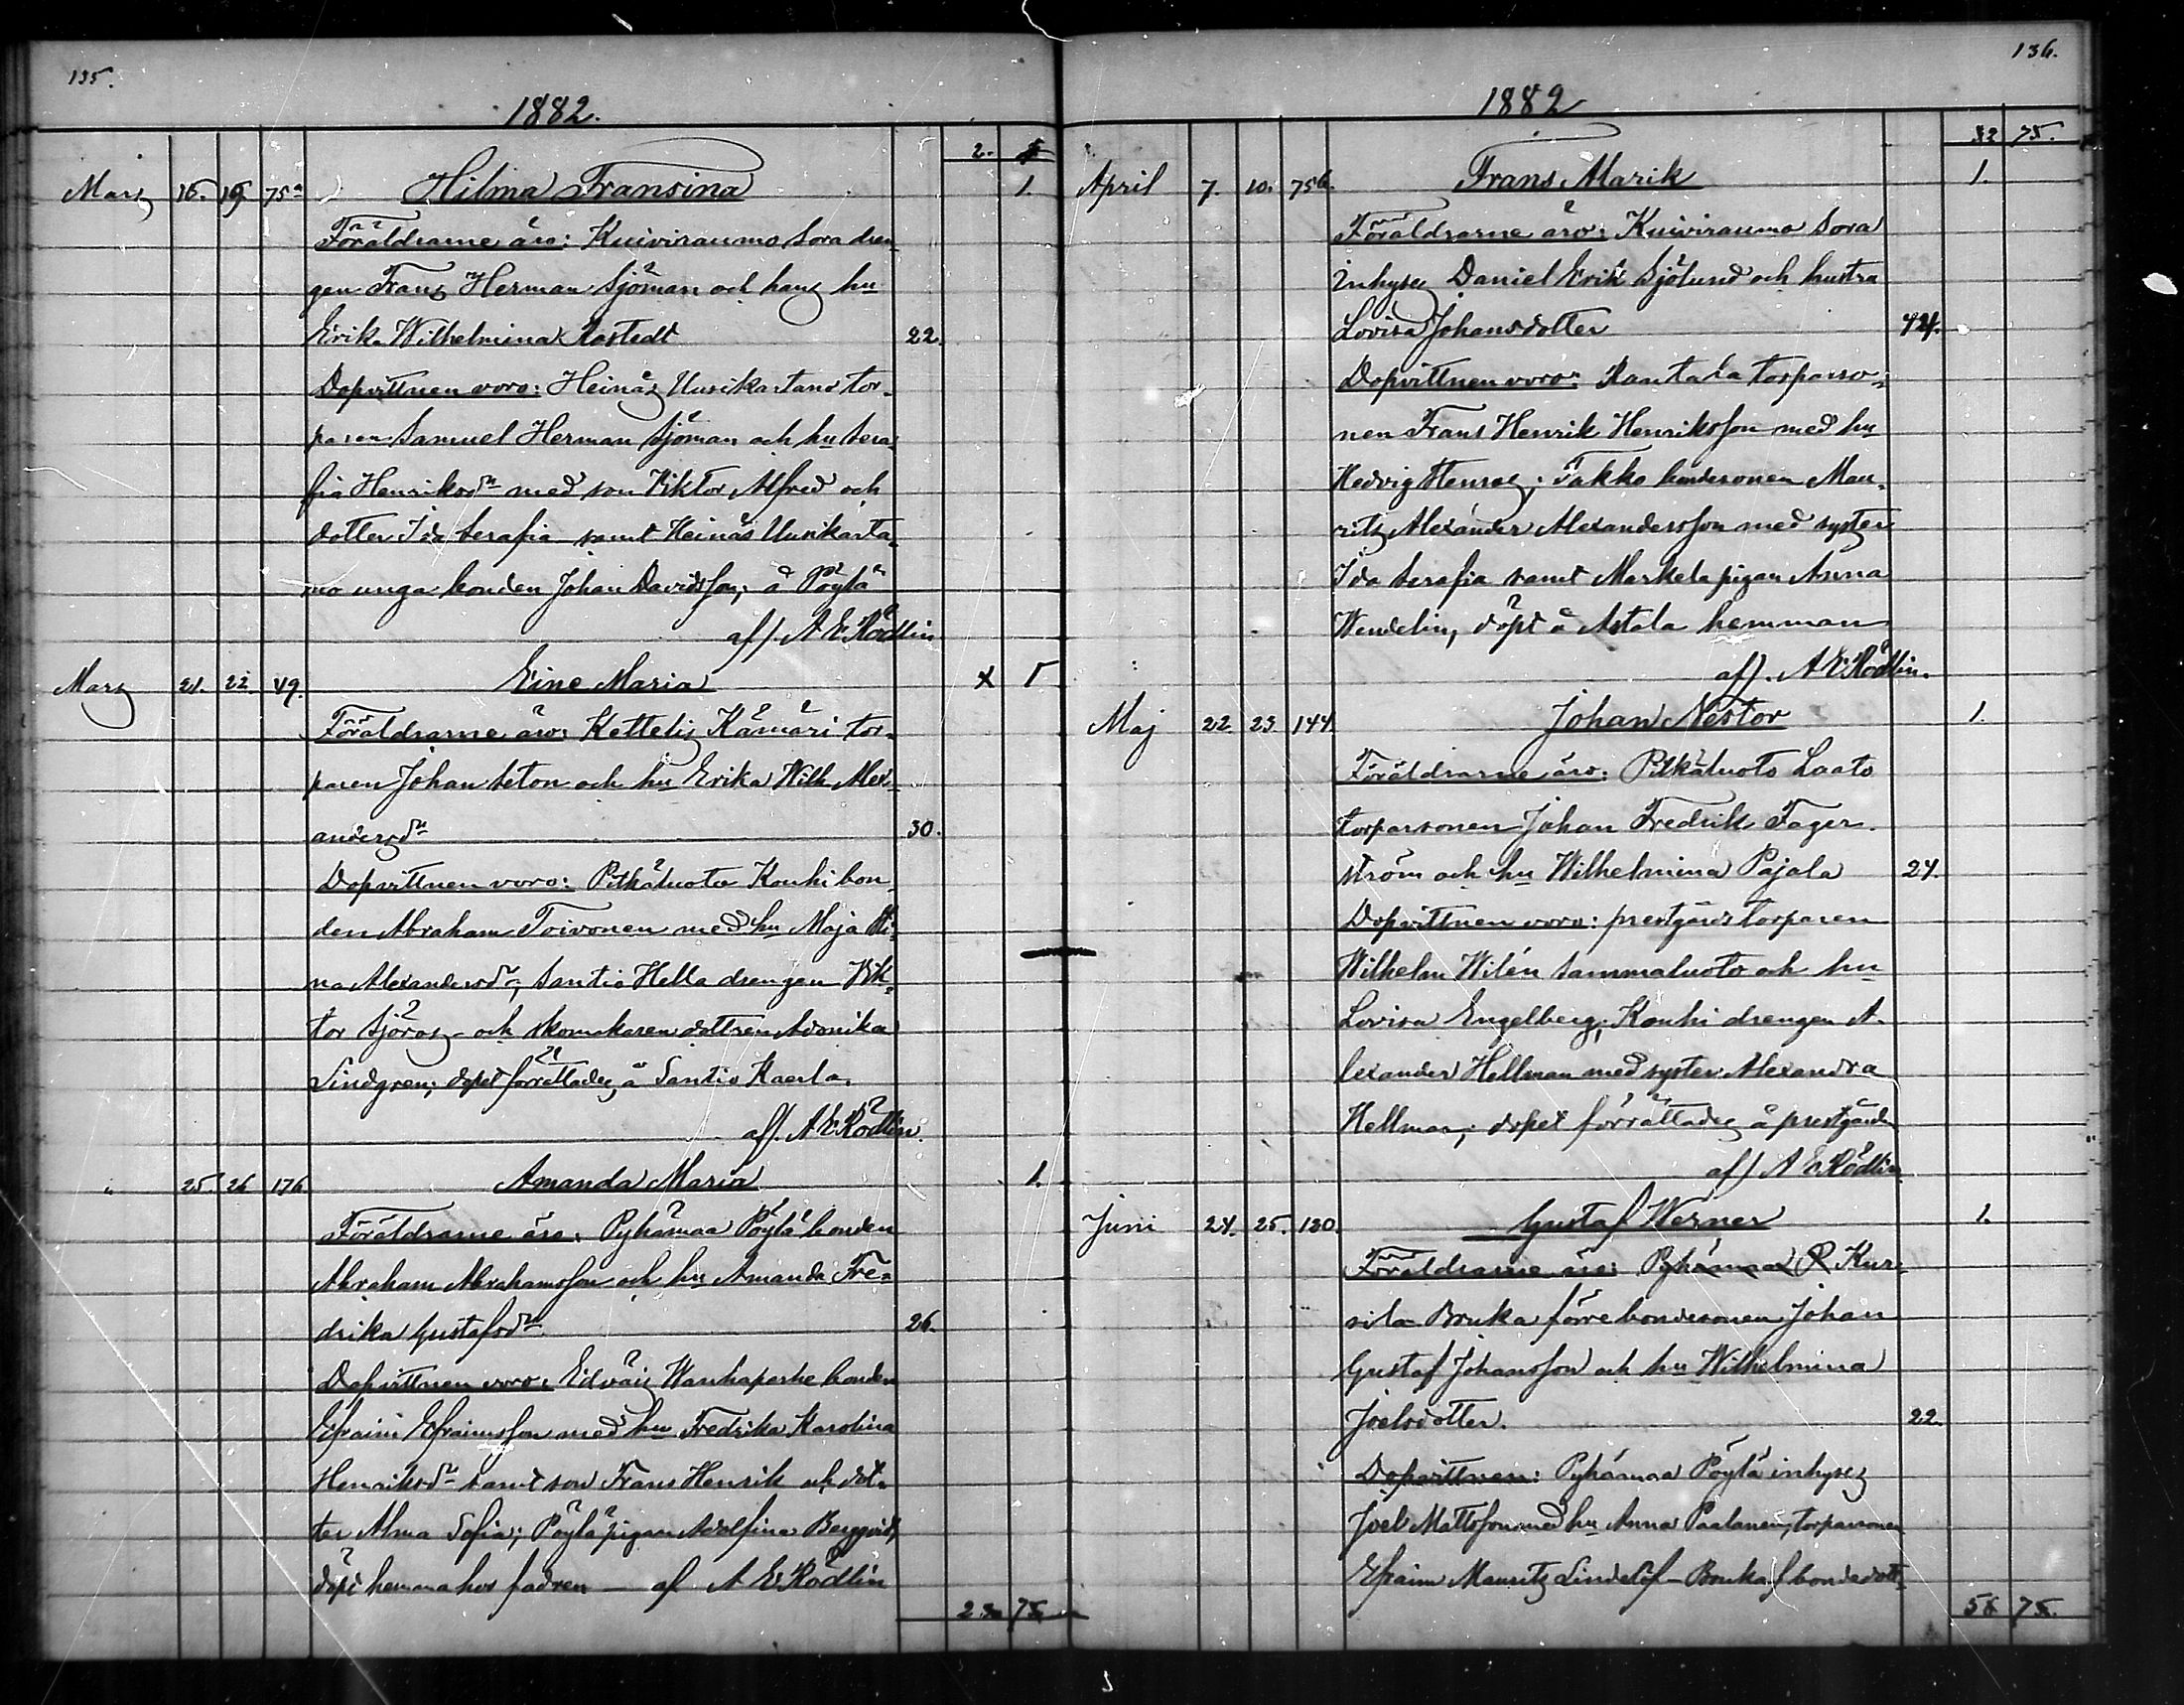 135.
1882.
2.
Mars 16. 19. 75a Hilma Fransina 1.
Föräldrarne äro: Kuivirauma Sora dren
gen Frans Herman Sjöman och hans hu
Erik. Wilhelmina Rostedt 22.
Dopvittnen voro: Heinäs Uusikartano tor-
paren Samuel Herman Sjöman och hu Sera
fia Henriksdr med son Viktor Alfred och
dotter Ida Serafia samt Heinäs Uusikarta
no unga bonden Johan Davidsson; å Pöylä
af/. A E Rödlin
Mars 21. 22 49. Eine Maria x 1
Föräldrarne äro: Kettelis Kämäri tor-
paren Johan Seton och hu Erika Wilh. Alex-
andersdr 30.
Dopvittnen voro: Pitkäluoto Kouhi bon
den Abraham Toivonen med hu Maja Sti-
na Alexandersdr, Santio Hella drengen Vik-
tor Sjöros och skomakaren dottren Avonika
Lindgren; dopet förrättades å Santio Kaerla.
af/. A E Rödlin.
" 25. 26 176 Amanda Maria 1.
Föräldrarne äro: Pyhämaa Pöylä bonden
Abraham Abrahamsson och hu Amanda Fre-
drika Gustafsdr 26.
Dopvittnen voro: Edväis Wanhaperhe bonden
Efraim Efraimsson med hu Fredrika Karolina
Henriksdr samt son Frans Henrik och dot-
ter Alma Sofia; Pöylä pigan Adolfina Bergqvist,
döpt hemma hos fadren — af A E Rödlin
75
136.
1882
32 75.
April 7. 10. 756. Frans Marik 1.
Föräldrarne äro: Kuivirauma Sora
inhyses Daniel Erik Sjölund och hustra
Lovisa Johansdotter 42/1.
Dopvittnen voro: Rantala torparso-
nen Frans Henrik Henriksson med hu
Hedvig Henrs; Takko bondesonen Mau-
ritz Alexander Alexandersson med syster
Ida Serafia samt Markela pigan Anna
Wendelin, döpt å Astala hemman
af/. A E Rödlin.
Maj 22. 23. 144. Johan Nestor 1.
Föräldrarne äro: Pitkäluoto Laato
torparsonen Johan Fredrik Fager-
ström och hu Wilhelmina Pajala 24.
Dopvittnen voro: prestgårds torparen
Wilhelm Wilén Sammaluoto och hu
Lovisa Engelberg; Kouhi drengen A-
lexander Hellman med syster Alexandra
Hellman; dopet förrättades å prestgården
af/ A E Rödlin
Juni 24. 25. 130. Gustaf Werner 1.
Föräldrarne äro: Pyhämaa P Kur-
sila Bruka förre bondesonen Johan
Gustaf Johansson och hu Wilhelmina
Joelsdotter. 22.
Dopvittnen: Pyhämaa Pöylä inhyses
Joel Mattsson med hu Anna Paalanen, torparsonen
Efraim Mauritz Lindelöf – Bruka f. bondedott-
56 75.